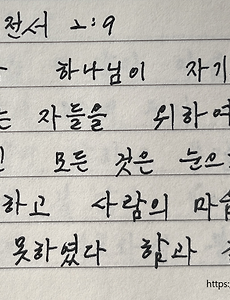 전서 2:9
하나님이 자기
는 자들을 위하여
모든 것은 눈으
하고 사람의 마음
못하였다 함과
https: